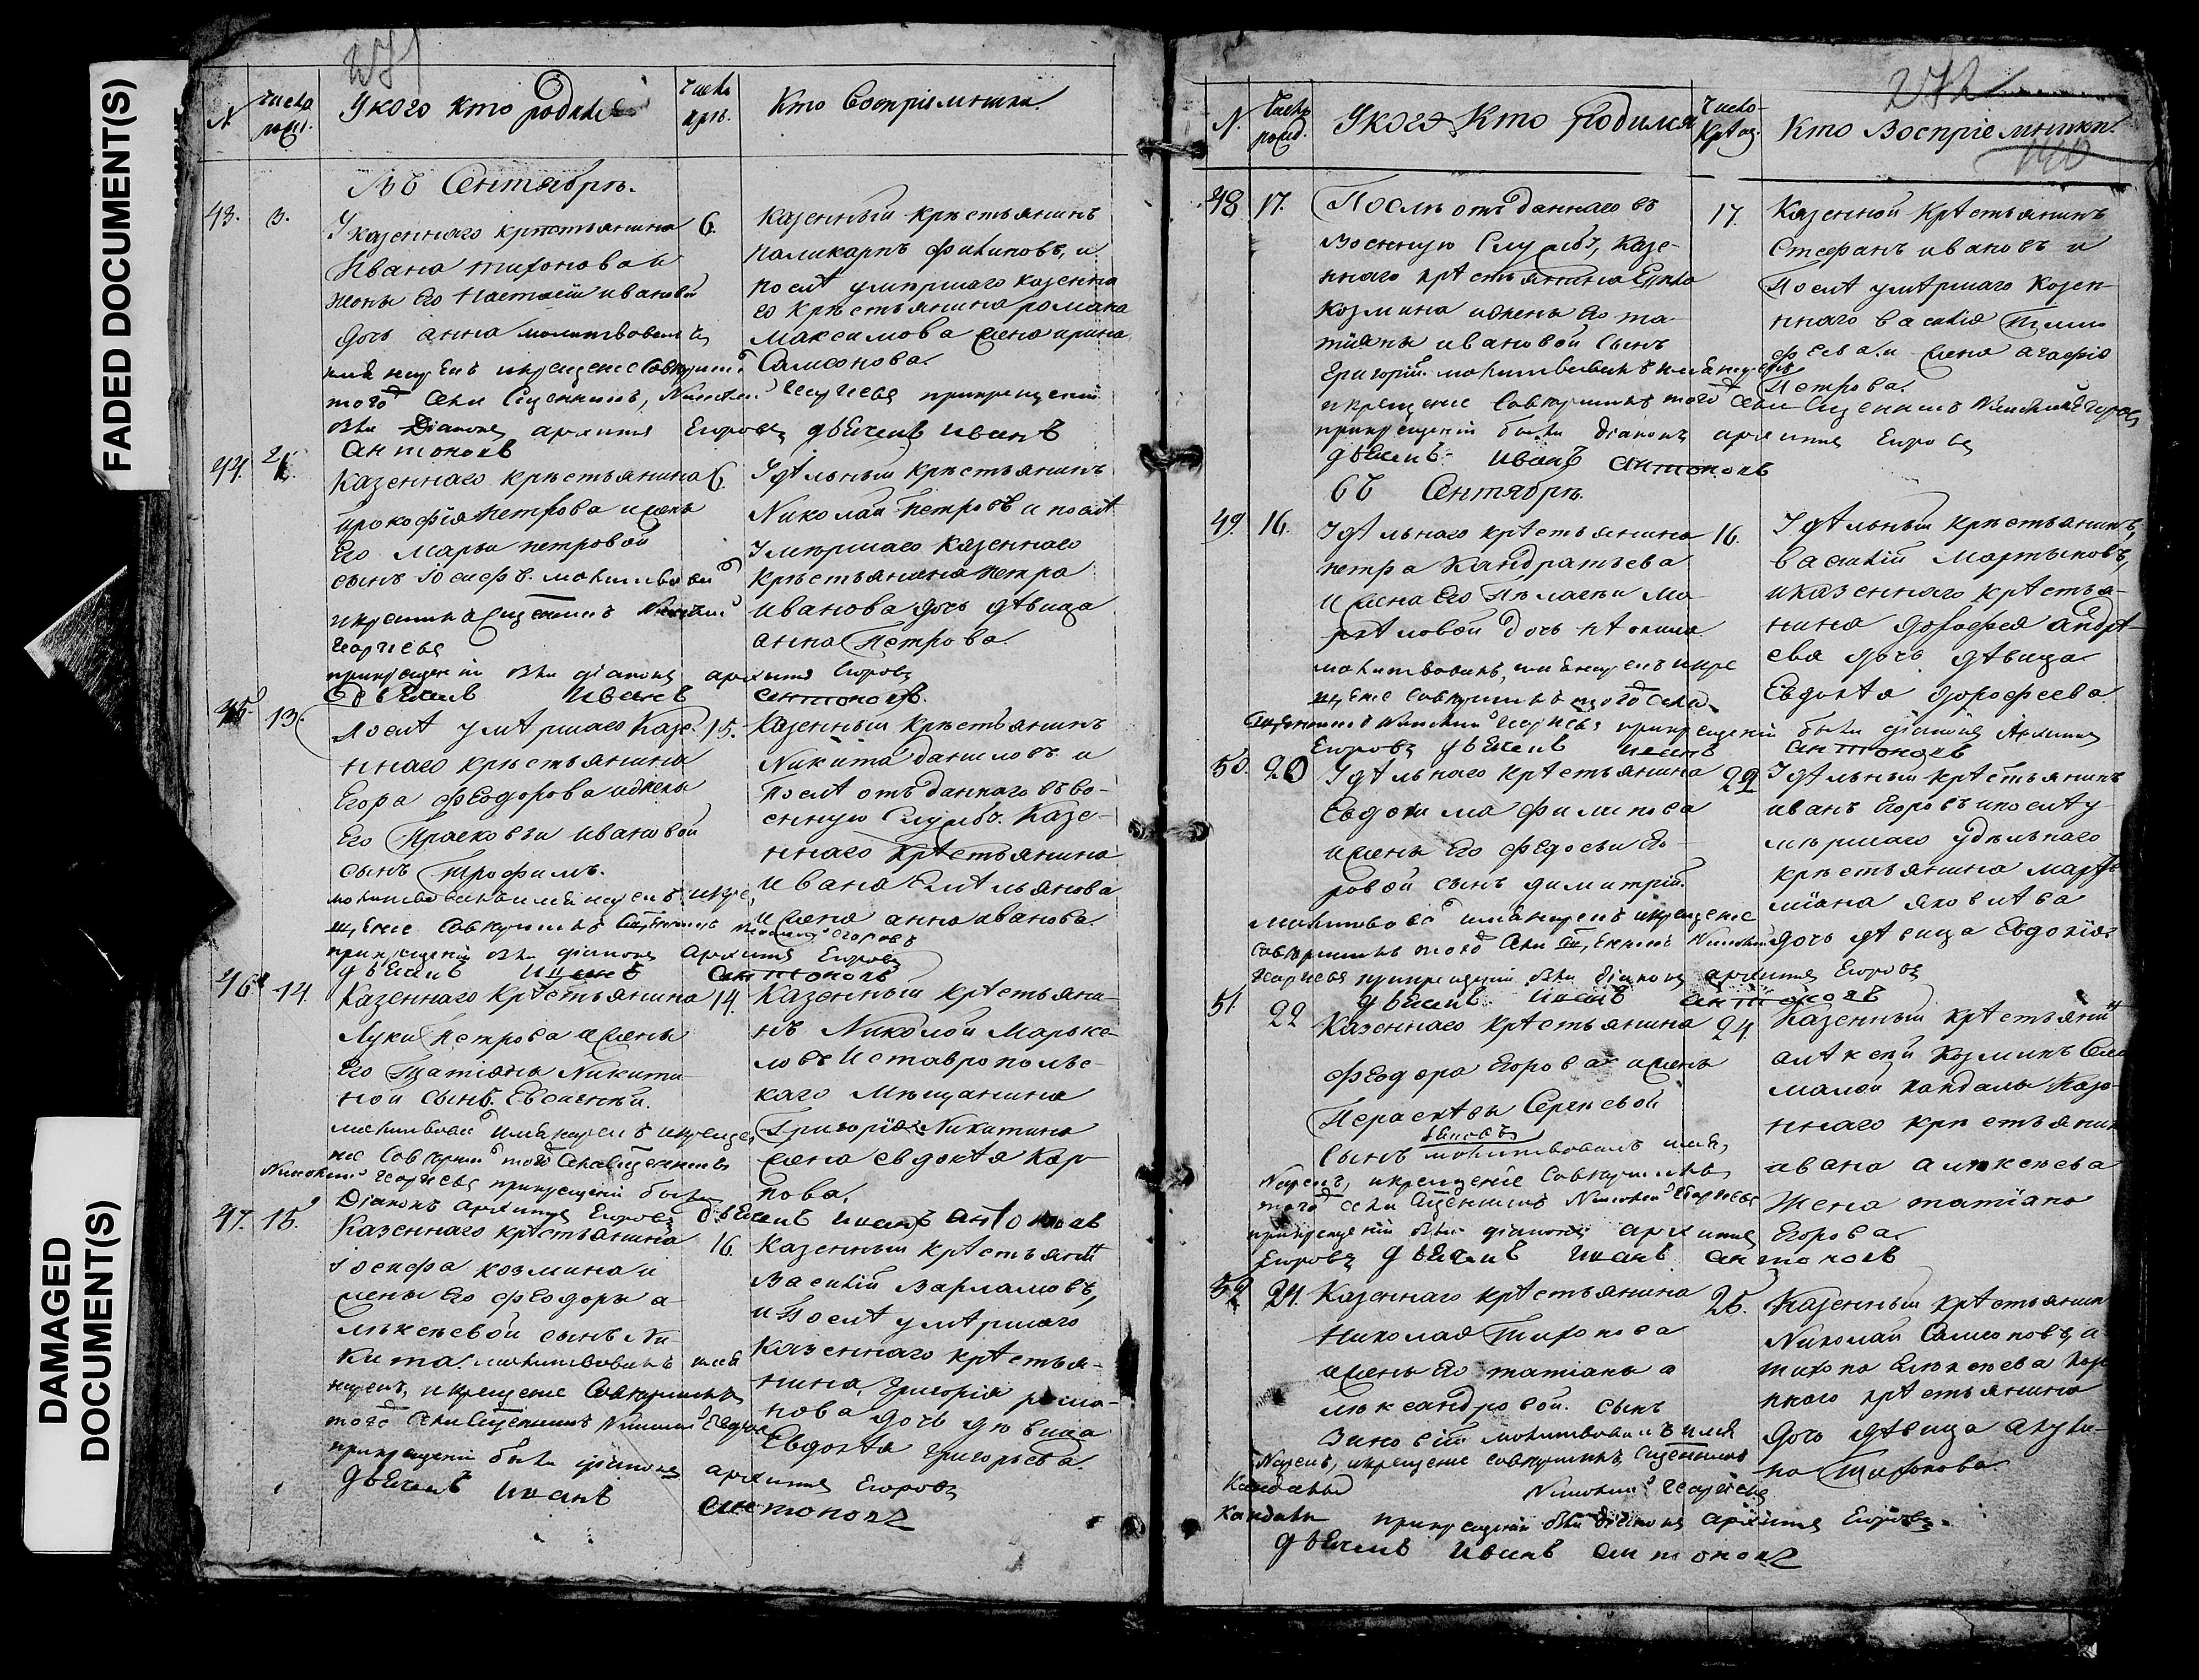 FADED DOCUMENT(S)
DAMAGED
DOCUMENT(S)
271
N
Числа рожд.
У кого кто родился
Числа крещ.
Кто Воспріемники.
Въ Сентябрѣ.
43. 3.
У казеннаго крѣстьянина
Ивана тихонова и
жены Его Настасіи ивановой
дочь анна молитвовалъ
имя нарекъ и крещеніе Совершилъ
того Села Священникъ, Николай Георгіевъ при крещеніи
были Діаконъ архиппъ Егоровъ дьячекъ иванъ
антоновъ
6.
казенный крѣстьянинъ
паликарпъ филиповъ, и
послѣ умершаго казенна
го крѣстьянина романа
максимова жена ирина
Самсонова.
44.
Казеннаго крѣстьянина
прокофія петрова и жены
Его марьи петровой
сынъ Іосифъ. молитвовалъ
и крестилъ Священникъ Николай
Георгіевъ
при крещеніи были діаконъ архиппъ Егоровъ
дьячекъ иванъ антоновъ.
6.
Удѣльный крѣстьянинъ
Николай петровъ и послѣ
Умершаго казеннаго
крѣстьянина петра
иванова дочь дѣвица
анна Петрова.
45. 13.
послѣ умѣршаго Казе-
ннаго крѣстьянина
Егора феодорова и жены
Его Прасковьи ивановой
сынъ Трофимъ.
молитвовалъ имя нарекъ и кре
щеніе Совершилъ Священникъ Николай Егоровъ
при крещеніи были діаконъ архиппъ Егоровъ
дьячекъ иванъ антоновъ
15.
Казенный крѣстьянинъ
Никита даниловъ и
Послѣ отъданнаго въ во-
енную Службу. Казе-
ннаго крѣстьянина
ивана Емѣльянова
жена анна иванова.
46. 14.
Казеннаго крѣстьянина
Луки петрова и жены
Его Татіаны Никити-
ной сынъ. Евсигней.
молитвовалъ имя нарекъ и креще
ніе Совершилъ того Села Священникъ
Николай Георгіевъ при крещеніи были
Діаконъ архиппъ Егоровъ дьячекъ иванъ антоновъ
14.
Казенный крѣстьяни-
нъ Николай
и ставрополь-
скаго мѣщанина
Григорія Никитина
жена евдокѣя Кар
пова.
47. 15.
Казеннаго крѣстьянина
іосифа козмина и
жены его феодоры а-
лѣксѣевой сынъ Ни-
кита. молитвовалъ имя
нарекъ, и крещеніе Совершилъ
того Села Священникъ Николай Егоров
при крещеніи были діаконъ архиппъ Егоровъ
дьячекъ иванъ антоновъ
16.
Казенный крѣстьянинъ
Василій Варламовъ,
и Послѣ умѣршаго
казеннаго крѣстья-
нина, Григорія рома-
нова дочь дѣвица
Евдокѣя григорьева
272
N.
Числа рожд.
У кого Кто Родился
Число Крещ.
Кто Воспріемники.
140
48 17.
Послѣ отъданнаго въ
военную Службу, Казе-
ннаго крѣстьянина
Козмина и жены Его та-
тіяны ивановой Сынъ
Григорій. молитвовалъ имя нарекъ
и крещеніе Совершилъ того Села Священникъ Николай Егоровъ
при крещеніи были діаконъ архиппъ Егоровъ
дьячекъ иванъ антоновъ
17.
Казенной Крѣстьянинъ
Стефанъ ивановъ и
Послѣ умѣршаго Козен-
ннаго василія Тимо
феева. жена агафія
Петрова.
Въ Сентябрѣ.
49. 16.
Удѣльнаго крѣстьянина
петра Кандратьева
и жена Его Пелагѣи
дочь
молитвовалъ, имя нарекъ и кре
щеніе Совершилъ того Села
Священникъ Николай Георгіевъ при крещеніи были діаконъ Архиппъ
Егоровъ дьячекъ иванъ антоновъ
16.
Удѣльный крѣстьянинъ,
василій Мартыновъ,
и казеннаго крѣстья-
нина дорофея андрѣ-
ева дочь дѣвица
Евдокѣя дорофеева.
50. 20
Удѣльнаго крѣстьянина
Евдокима филипова
и жены Его федосьи Его-
ровой сынъ димитрій.
молитвовалъ имя нарекъ и крещеніе
Совершилъ того Села Священникъ Николай
Георгіевъ при крещеніи были діаконъ архиппъ Егоровъ
дьячекъ иванъ антоновъ
22
Удѣльный крѣстьянинъ
иванъ Егоровъ и послѣ у
мѣршаго удѣльнаго
крѣстьянина
яковлѣва
дочь дѣвица Евдокія.
51. 22
Казеннаго крѣстьянина
феодора Егорова и жены
Сергѣевой
Сынъ
молитвовалъ имя,
Нарекъ, и крещеніе Совершилъ
того Села Священникъ Николай Георгіевъ
при крещеніи были діаконъ архиппъ
Егоровъ дьячекъ иванъ антоновъ
24.
Казенный крѣстьянинъ
алѣксѣй Козминъ Села
малой кандалы Казе-
ннаго крѣстьянина
ивана алѣксѣева
Жена татіана
Егорова.
52 24.
Казеннаго крѣстьянина
Николая Тихонова
и жены Его татіаны а
лѣксандровой. сынъ
Зиновій молитвовалъ имя
Нарекъ, и крещеніе совершилъ Священникъ
Кандалы Николай Георгіевъ
Кандалы при крещеніи были діаконъ архиппъ Егоровъ.
дьячекъ иванъ антоновъ
25.
Казенный крѣстьянинъ
Николай Самсоновъ, и
тихона Алѣксѣева
ннаго крѣстьянина
дочь дѣвица акули-
на Тихонова.